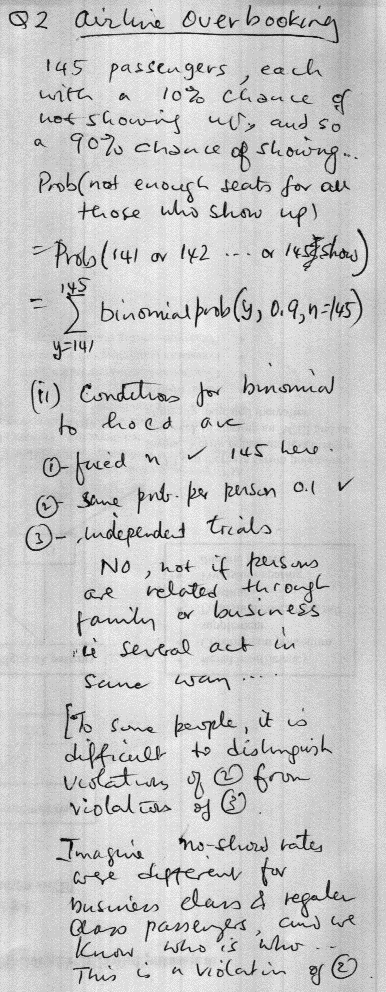 Q2 Airline Overbooking
145 passengers, each
with a 10% chance of
not showing up, and so
a 90% chance of showing...
Prob(not enough seats for all
those who show up)
= Prob(141 or 142 ... or 145 show)
= 145 ∑ y=141 binomialprob(y, 0.9, n=145)
(ii) Conditions for binomial
to hold are
① - fixed n ✓ 145 here.
② - same prob. per person 0.1 ✓
③ - independent trials
No, not if persons
are related through
family or business
ie several act in
same way ....
[To some people, it is
difficult to distinguish
violations of ② from
violations of ③.
Imagine no-show rates
were different for
business class & regular
class passengers, and we
know who is who ...
This is a violation of ②.